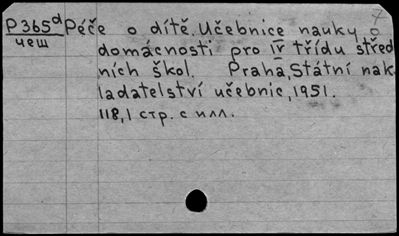 7
P365d Péče o dítě. Učebnice nauky o
чеш domácnosti pro IV třídu střed
ních škol. Praha, Státní nak
ladatelství učebnic, 1951.
118,1 стр. с илл.